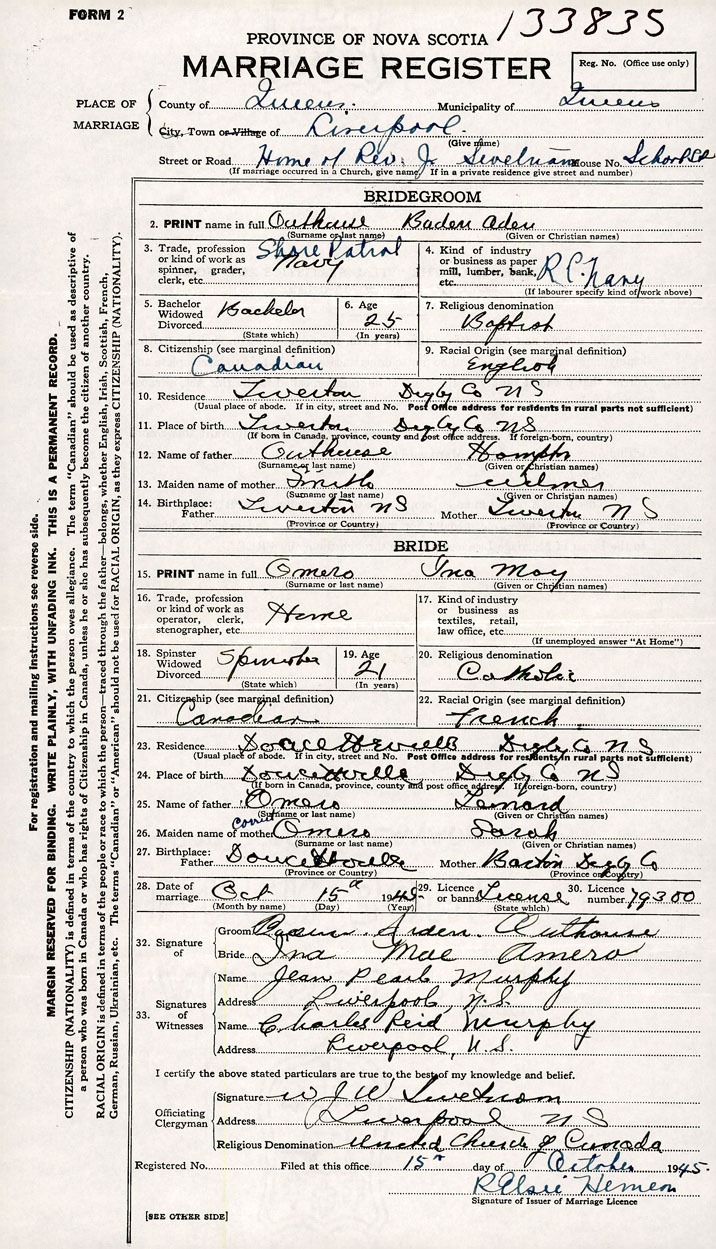 FORM 2
133835
PROVINCE OF NOVA SCOTIA
MARRIAGE REGISTER
Reg. No. (Office use only)
PLACE OF MARRIAGE
County of Queens. Municipality of Queens
City, Town or Village of Liverpool.
(Give name)
Street or Road Home of Rev. House No.
(If marriage occurred in a Church, give name) If in a private residence give street and number)
BRIDEGROOM
2. PRINT name in full Outhouse Baden Aden
(Surname or last name) (Given or Christian names)
3. Trade, profession or kind of work as spinner, grader, clerk, etc. Shore Patrol Navy
4. Kind of industry or business as paper mill, lumber, bank, etc. R C Navy
(If labourer specify kind of work above)
5. Bachelor Widowed Divorced Bachelor
(State which)
6. Age 25
(In years)
7. Religious denomination Baptist
8. Citizenship (see marginal definition) Canadian
9. Racial Origin (see marginal definition) English
10. Residence Tiverton Digby Co N S
(Usual place of abode. If in city, street and No. Post Office address for residents in rural parts not sufficient)
11. Place of birth Tiverton Digby Co N S
(If born in Canada, province, county and post office address. If foreign-born, country)
12. Name of father Outhouse
(Surname or last name) (Given or Christian names)
13. Maiden name of mother Smith
(Surname or last name) (Given or Christian names)
14. Birthplace: Father Tiverton N S Mother Tiverton N S
(Province or Country) (Province or Country)
BRIDE
15. PRINT name in full Omero Ina May
(Surname or last name) (Given or Christian names)
16. Trade, profession or kind of work as operator, clerk, stenographer, etc. Home
17. Kind of industry or business as textiles, retail, law office, etc.
(If unemployed answer "At Home")
18. Spinster Widowed Divorced Spinster
(State which)
19. Age 21
(In years)
20. Religious denomination Catholic
21. Citizenship (see marginal definition) Canadian
22. Racial Origin (see marginal definition) French
23. Residence Digby Co N S
(Usual place of abode. If in city, street and No. Post Office address for residents in rural parts not sufficient)
24. Place of birth Doucetteville Digby Co N S
(If born in Canada, province, county and post office address. If foreign-born, country)
25. Name of father Omero
(Surname or last name) (Given or Christian names)
26. Maiden name of mother Omero Sarah
(Surname or last name) (Given or Christian names)
27. Birthplace: Father Mother Barton Digby Co
(Province or Country) (Province or Country)
28. Date of marriage Oct 15th 1945
(Month by name) (Day) (Year)
29. Licence or banns License
(State which)
30. Licence number 79300
32. Signature of
Groom Outhouse
Bride Ina Mae Amero
33. Signatures of Witnesses
Name Jean Pearl Murphy
Address Liverpool, N.S.
Name Charles Reid Murphy
Address Liverpool, N.S.
I certify the above stated particulars are true to the best of my knowledge and belief.
Officiating Clergyman
Signature W J W
Address Liverpool N S
Religious Denomination United Church of Canada
Registered No. Filed at this office 15th day of October 1945.
R Elsie Hemeon
Signature of Issuer of Marriage Licence
[SEE OTHER SIDE]
For registration and mailing instructions see reverse side.
MARGIN RESERVED FOR BINDING. WRITE PLAINLY, WITH UNFADING INK. THIS IS A PERMANENT RECORD.
CITIZENSHIP (NATIONALITY) is defined in terms of the country to which the person owes allegiance. The term "Canadian" should be used as descriptive of
a person who was born in Canada or who has rights of Citizenship in Canada, unless he or she has subsequently become the citizen of another country.
RACIAL ORIGIN is defined in terms of the people or race to which the person—traced through the father—belongs, whether English, Irish, Scottish, French,
German, Russian, Ukrainian, etc. The terms "Canadian" or "American" should not be used for RACIAL ORIGIN, as they express CITIZENSHIP (NATIONALITY).